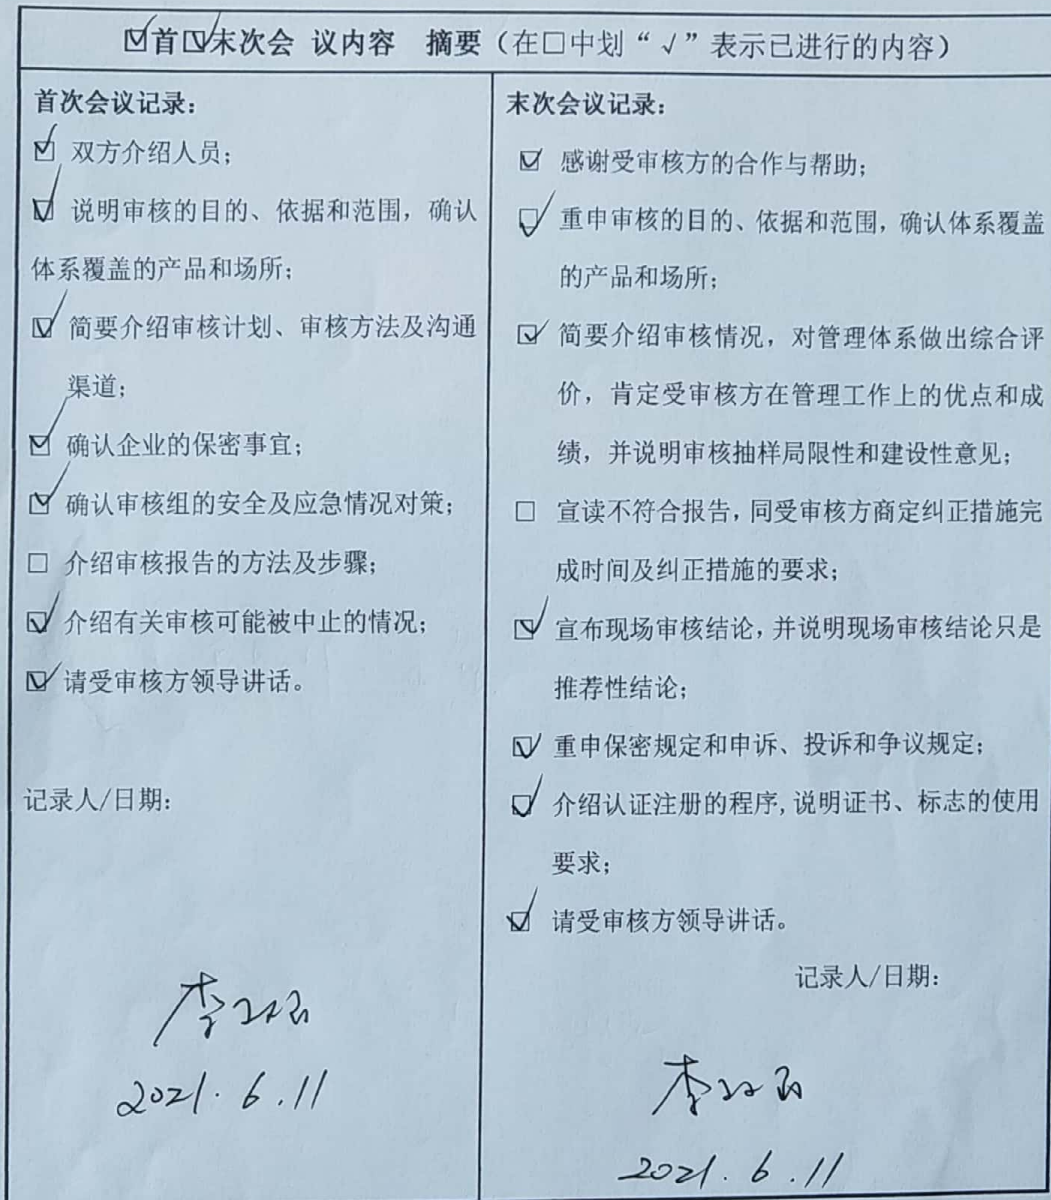 ☑首☑末次会 议内容 摘要（在□中划“√”表示已进行的内容）
首次会议记录：
☑ 双方介绍人员；
☑ 说明审核的目的、依据和范围，确认
体系覆盖的产品和场所；
☑ 简要介绍审核计划、审核方法及沟通
渠道；
☑ 确认企业的保密事宜；
☑ 确认审核组的安全及应急情况对策；
□ 介绍审核报告的方法及步骤；
☑ 介绍有关审核可能被中止的情况；
☑ 请受审核方领导讲话。
记录人/日期：
2021.6.11
末次会议记录：
☑ 感谢受审核方的合作与帮助；
☑ 重申审核的目的、依据和范围，确认体系覆盖
的产品和场所；
☑ 简要介绍审核情况，对管理体系做出综合评
价，肯定受审核方在管理工作上的优点和成
绩，并说明审核抽样局限性和建设性意见；
□ 宣读不符合报告，同受审核方商定纠正措施完
成时间及纠正措施的要求；
☑ 宣布现场审核结论，并说明现场审核结论只是
推荐性结论；
☑ 重申保密规定和申诉、投诉和争议规定；
☑ 介绍认证注册的程序,说明证书、标志的使用
要求；
☑ 请受审核方领导讲话。
记录人/日期：
2021.6.11